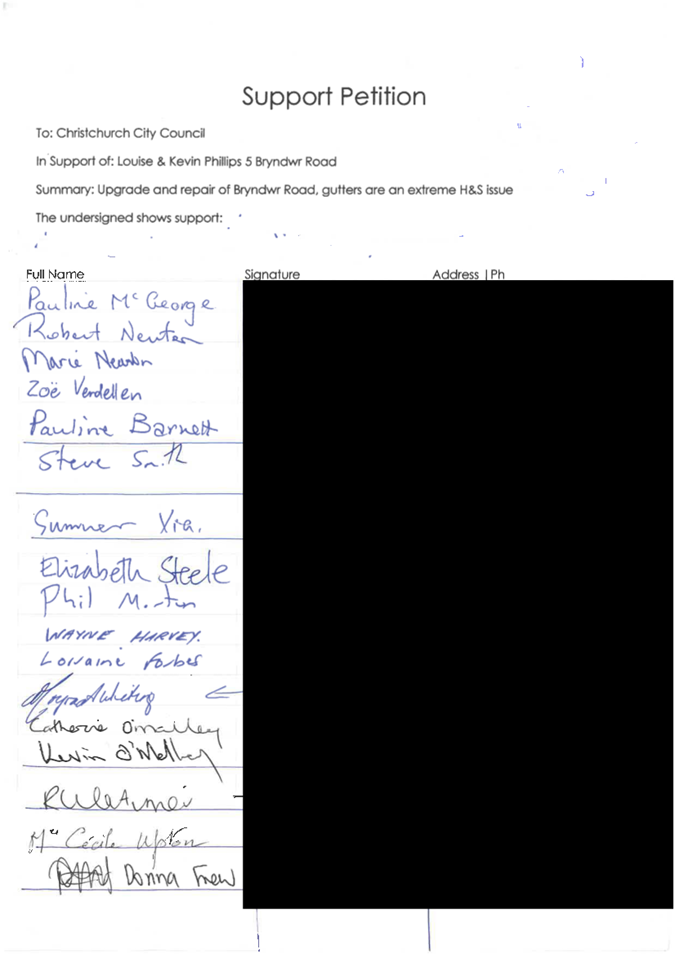 Support Petition
To: Christchurch City Council
In Support of: Louise & Kevin Phillips 5 Bryndwr Road
Summary: Upgrade and repair of Bryndwr Road, gutters are an extreme H&S issue
The undersigned shows support:
Full Name Signature Address | Ph
Pauline McGeorge
Robert Newton
Marie Newton
Zoë Verdellen
Pauline Barnett
Steve Smith
Summer Xia.
Elizabeth Steele
Phil Morton
WAYNE HARVEY.
Lorraine Forbes
Catherine O'Malley
Kevin O'Malley
Cécile Upton
Donna Frew